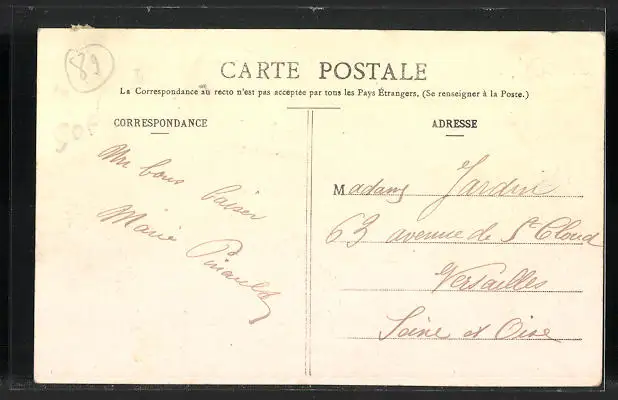 89
CARTE POSTALE
La Correspondance au recto n'est pas acceptée par tous les Pays Étrangers, (Se renseigner à la Poste.)
CORRESPONDANCE
ADRESSE
Un bons baiser
Marie Pinault
Madame Jardin
63 avenue de St Cloud
Versailles
Seine et Oise